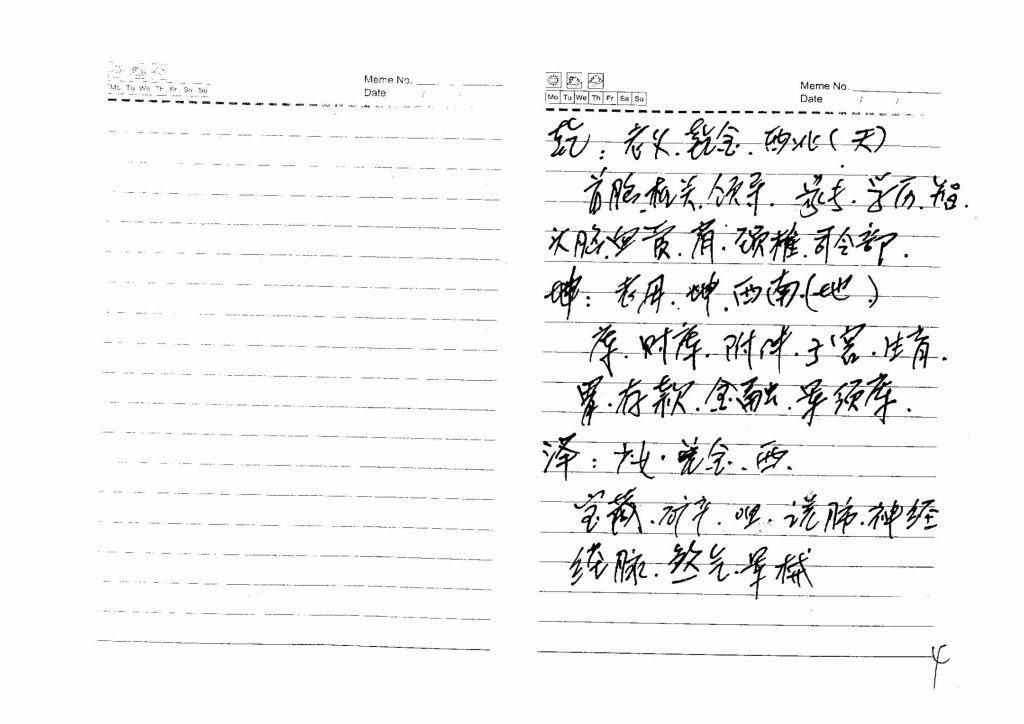 Mo Tu We Th Fr Sa Su
Meme No.
Date / /
Mo Tu We Th Fr Sa Su
Meme No.
Date / /
乾：老父.乾金.西北(天)
首脑.机关.领导.学历.
头脑.血质.骨.颈椎.司令部.
坤：老母.坤.西南.(地)
库.财库.附件.子宫.生育.
胃.存款.金融.军须库.
泽：少女.兑金.西.
宝藏.矿产.咽.肺.神经
经脉.煞气.军械
4